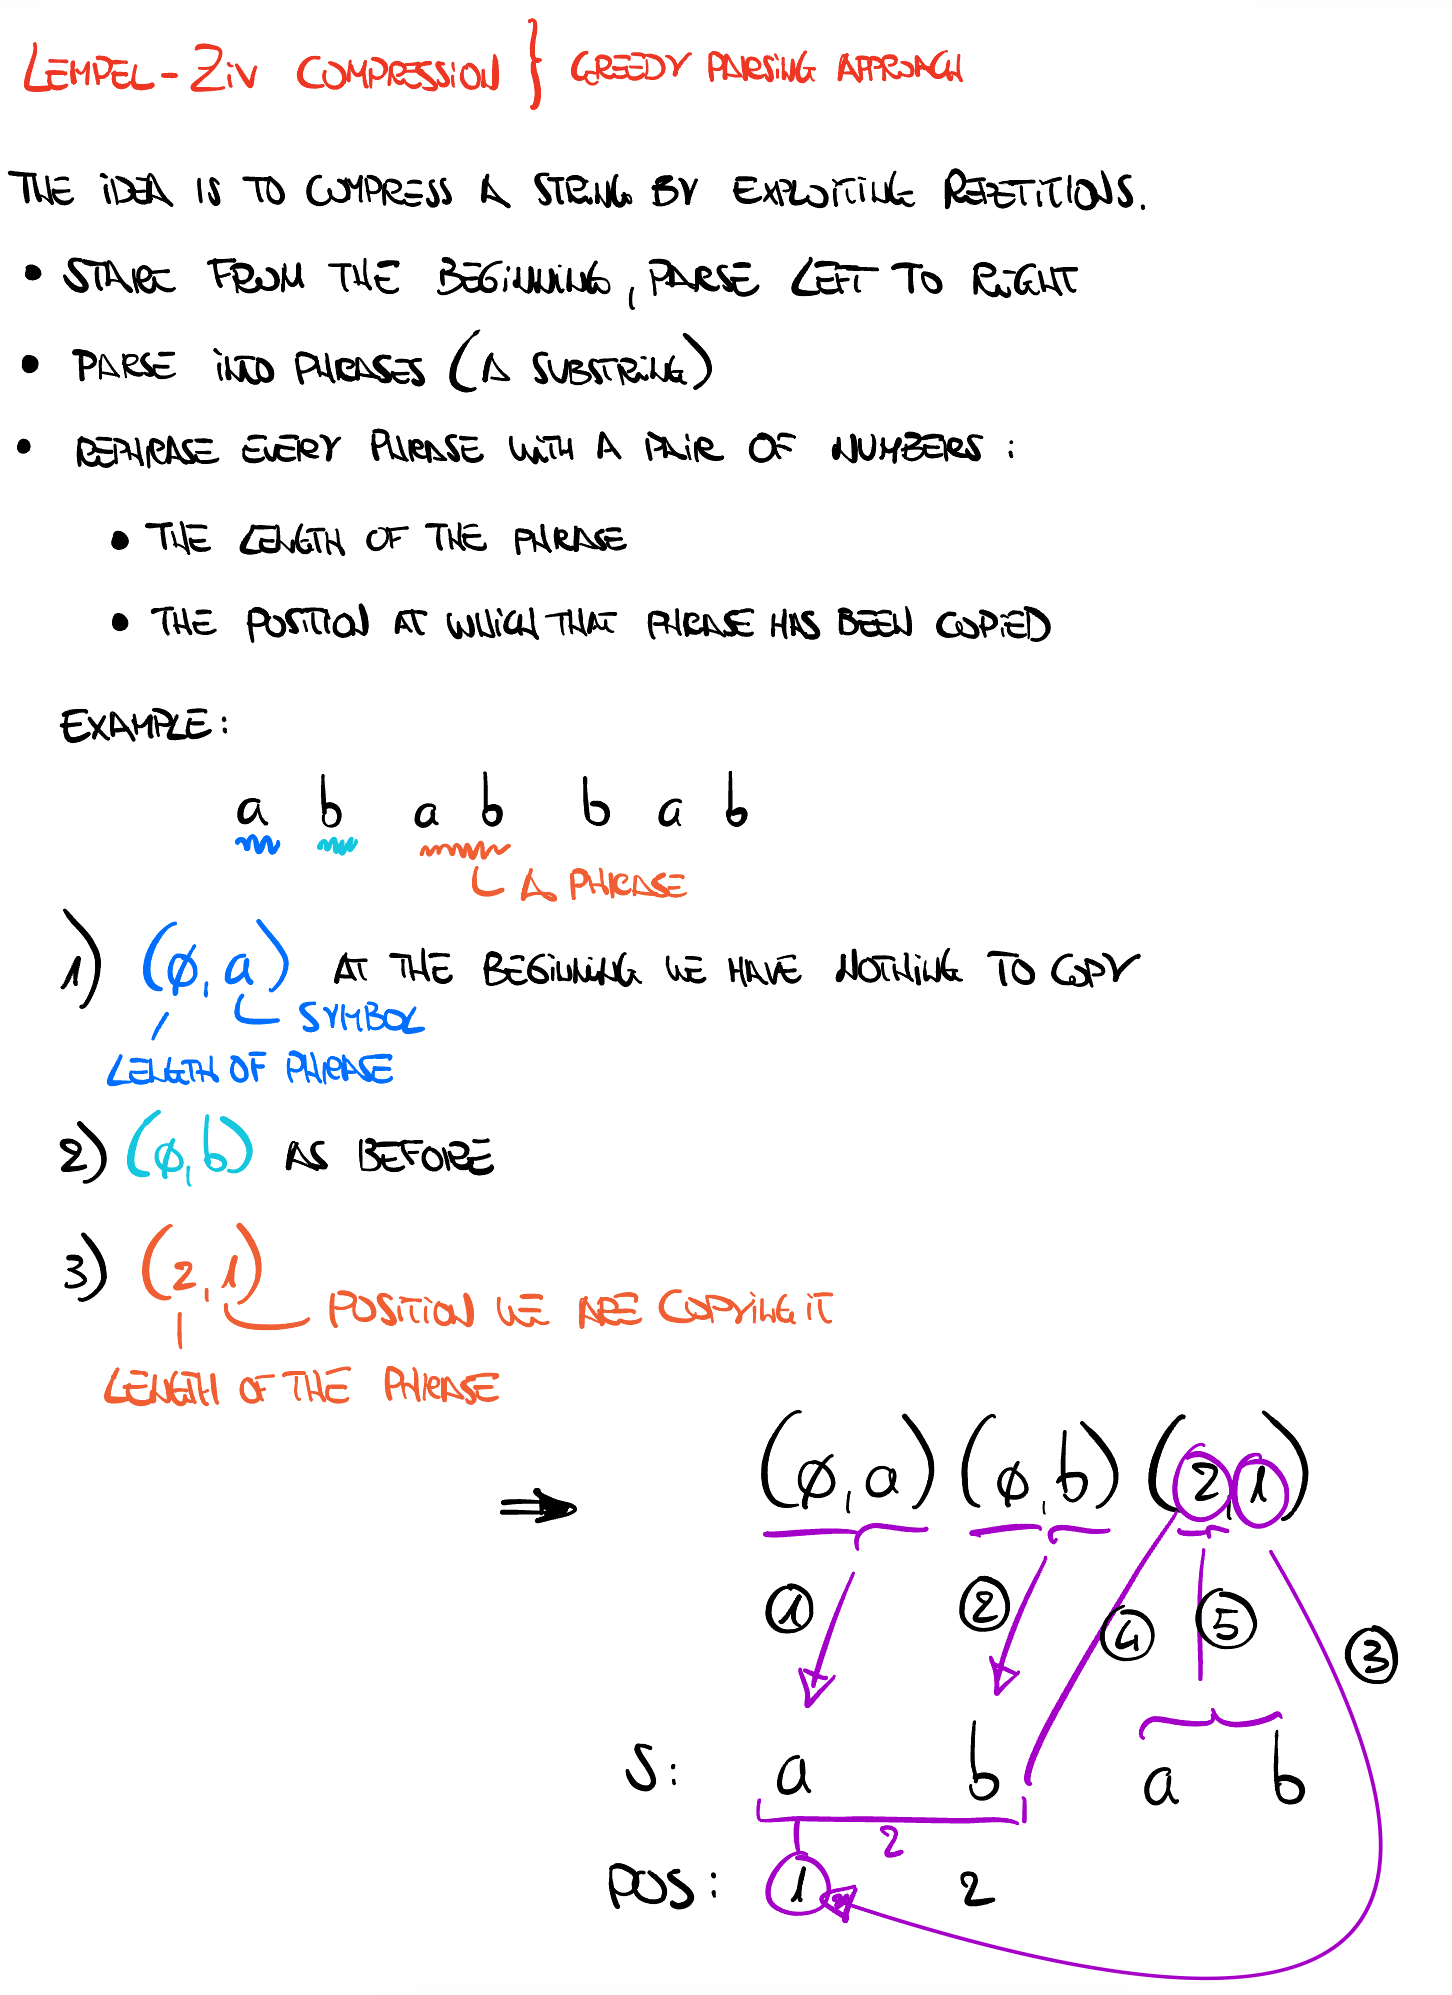 LEMPEL-ZIV COMPRESSION } GREEDY PARSING APPROACH
THE IDEA IS TO COMPRESS A STRING BY EXPLOITING REPETITIONS.
• START FROM THE BEGINNING, PARSE LEFT TO RIGHT
• PARSE INTO PHRASES (A SUBSTRING)
• REPHRASE EVERY PHRASE WITH A PAIR OF NUMBERS:
• THE LENGTH OF THE PHRASE
• THE POSITION AT WHICH THAT PHRASE HAS BEEN COPIED
EXAMPLE:
a b a b b a b
A PHRASE
1) (ø, a) AT THE BEGINNING WE HAVE NOTHING TO COPY
SYMBOL
LENGTH OF PHRASE
2) (ø, b) AS BEFORE
3) (2, 1)
POSITION WE ARE COPYING IT
LENGTH OF THE PHRASE
⇒ (ø, a) (ø, b) (2, 1)
1 2 4 5 3
S: a b a b
2
POS: 1 2